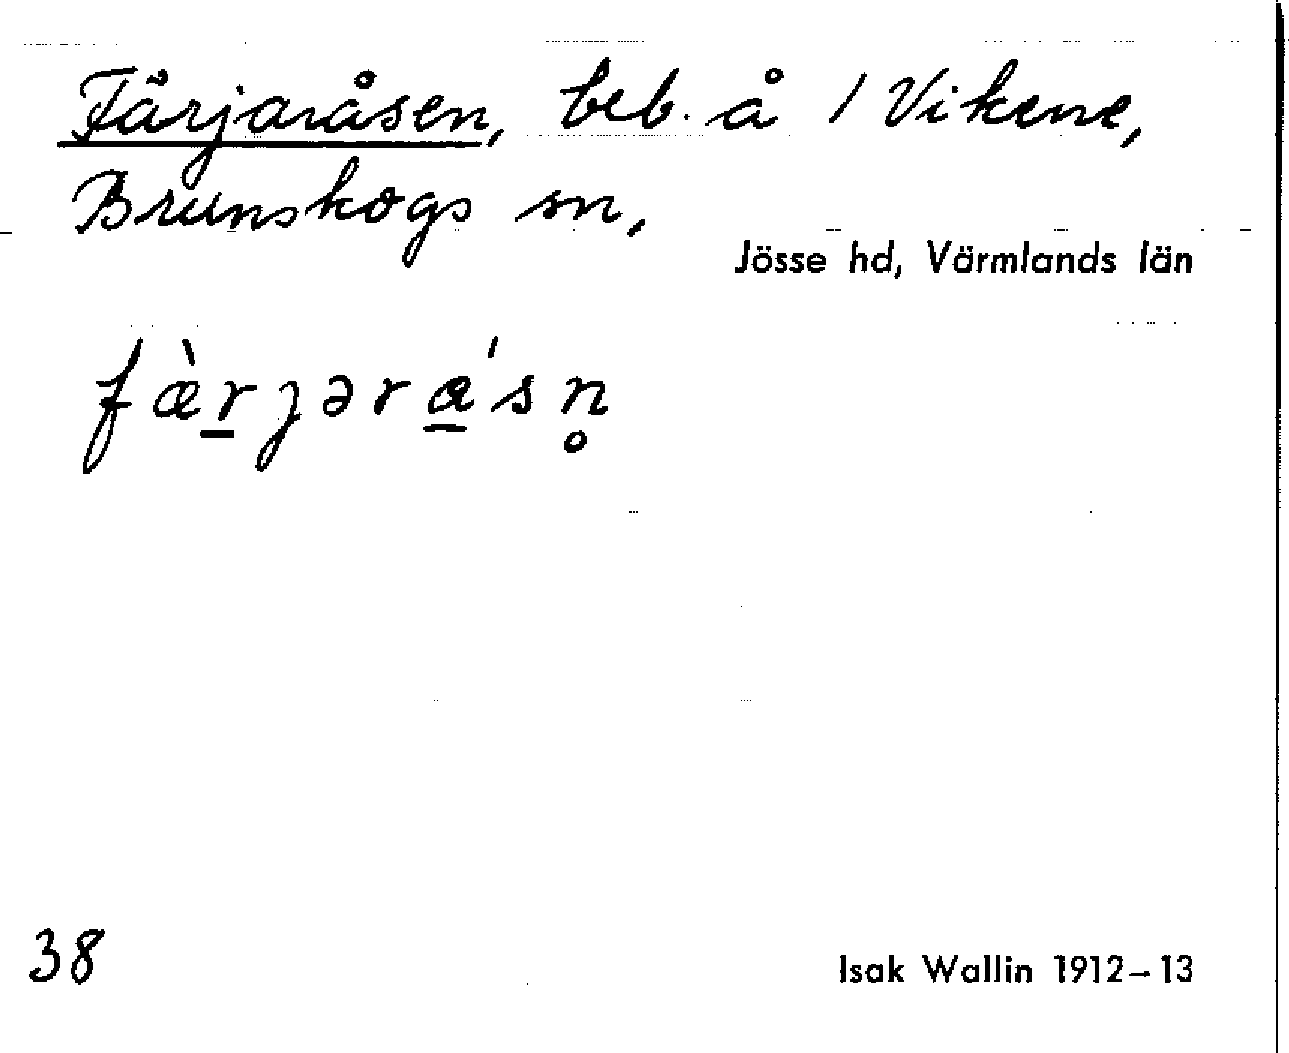 Färjaråsen, beb. å 1 Vikene,
Brunskogs sn,
Jösse hd, Värmlands län
fæ̀r̲ȷərá̲sn̥
38
Isak Wallin 1912–13